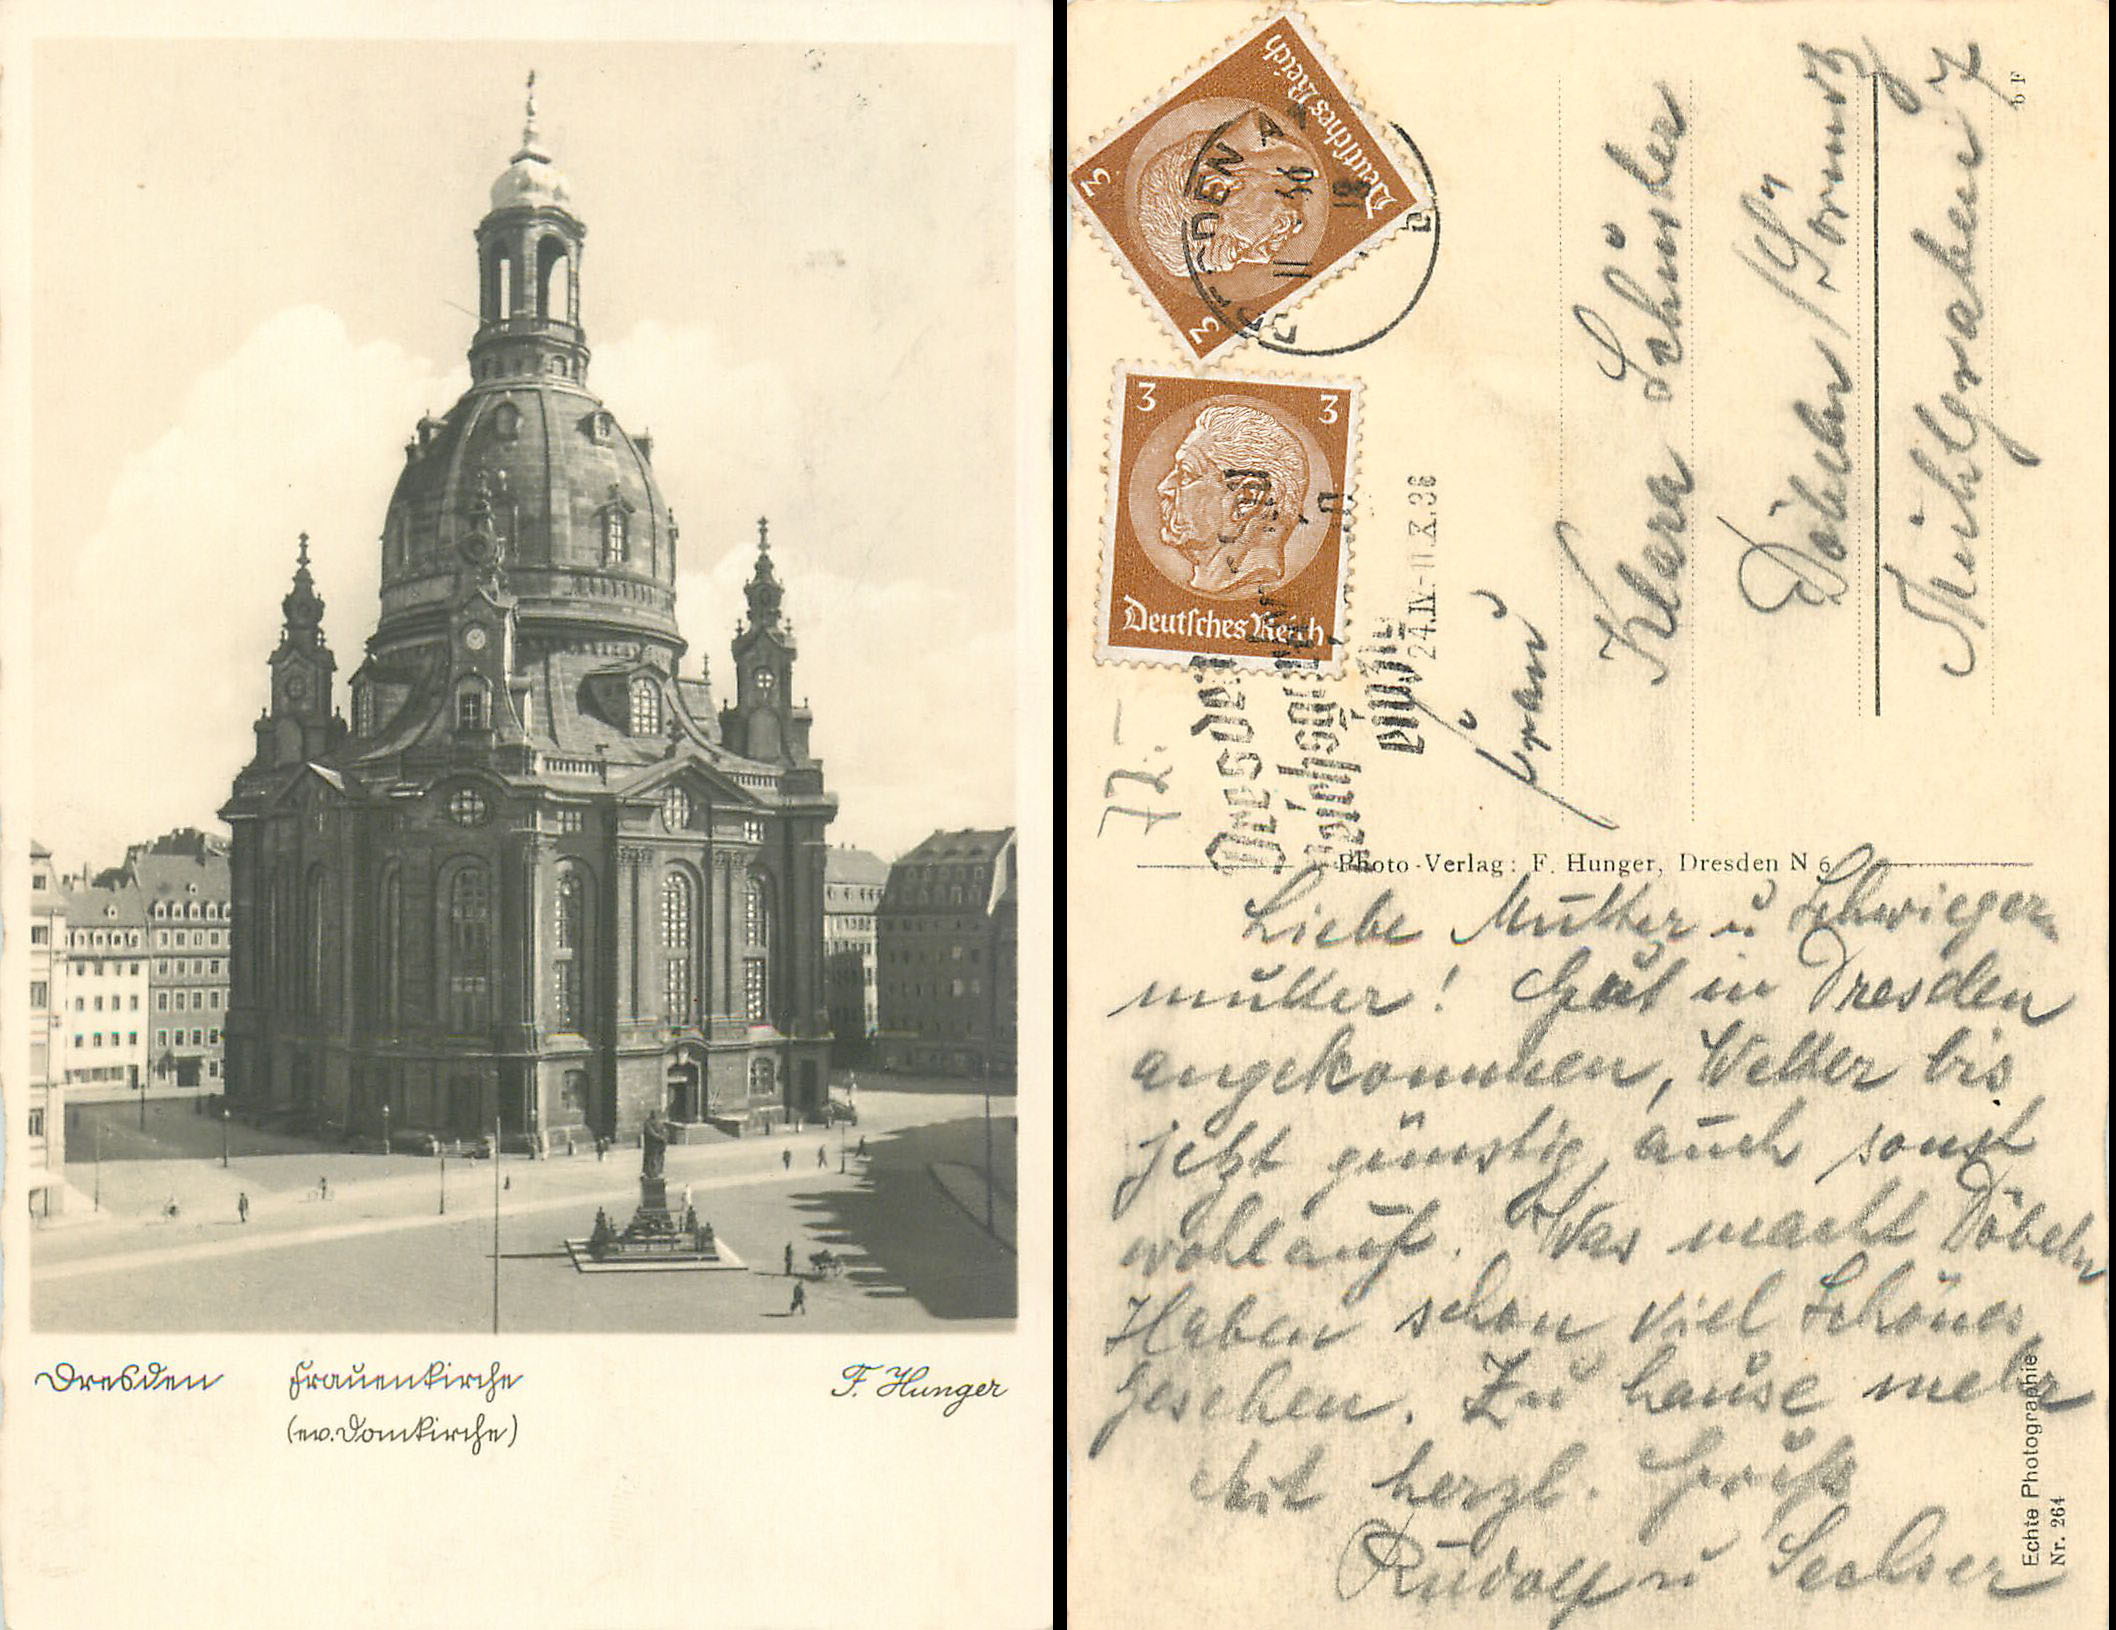 Dresden Frauenkirche
(ev. Domkirche)
F. Hunger
3 3
Deutsches Reich
3 3
Deutsches Reich
24.IV.-11.X.36
72.-
Frau
Klara Schuster
Döbeln /Sörmitz
Mühlgraben 7
b F
Photo-Verlag: F. Hunger, Dresden N 6
Liebe Mutter u Schwieger-
mutter! Gut in Dresden
angekommen, Wetter bis
jetzt günstig, auch sonst
wohlauf. Was macht Döbeln
Haben schon viel Schönes
gesehen. Zu hause mehr
Mit herzl. Gruß
Rudolf u
Echte Photographie
Nr. 264